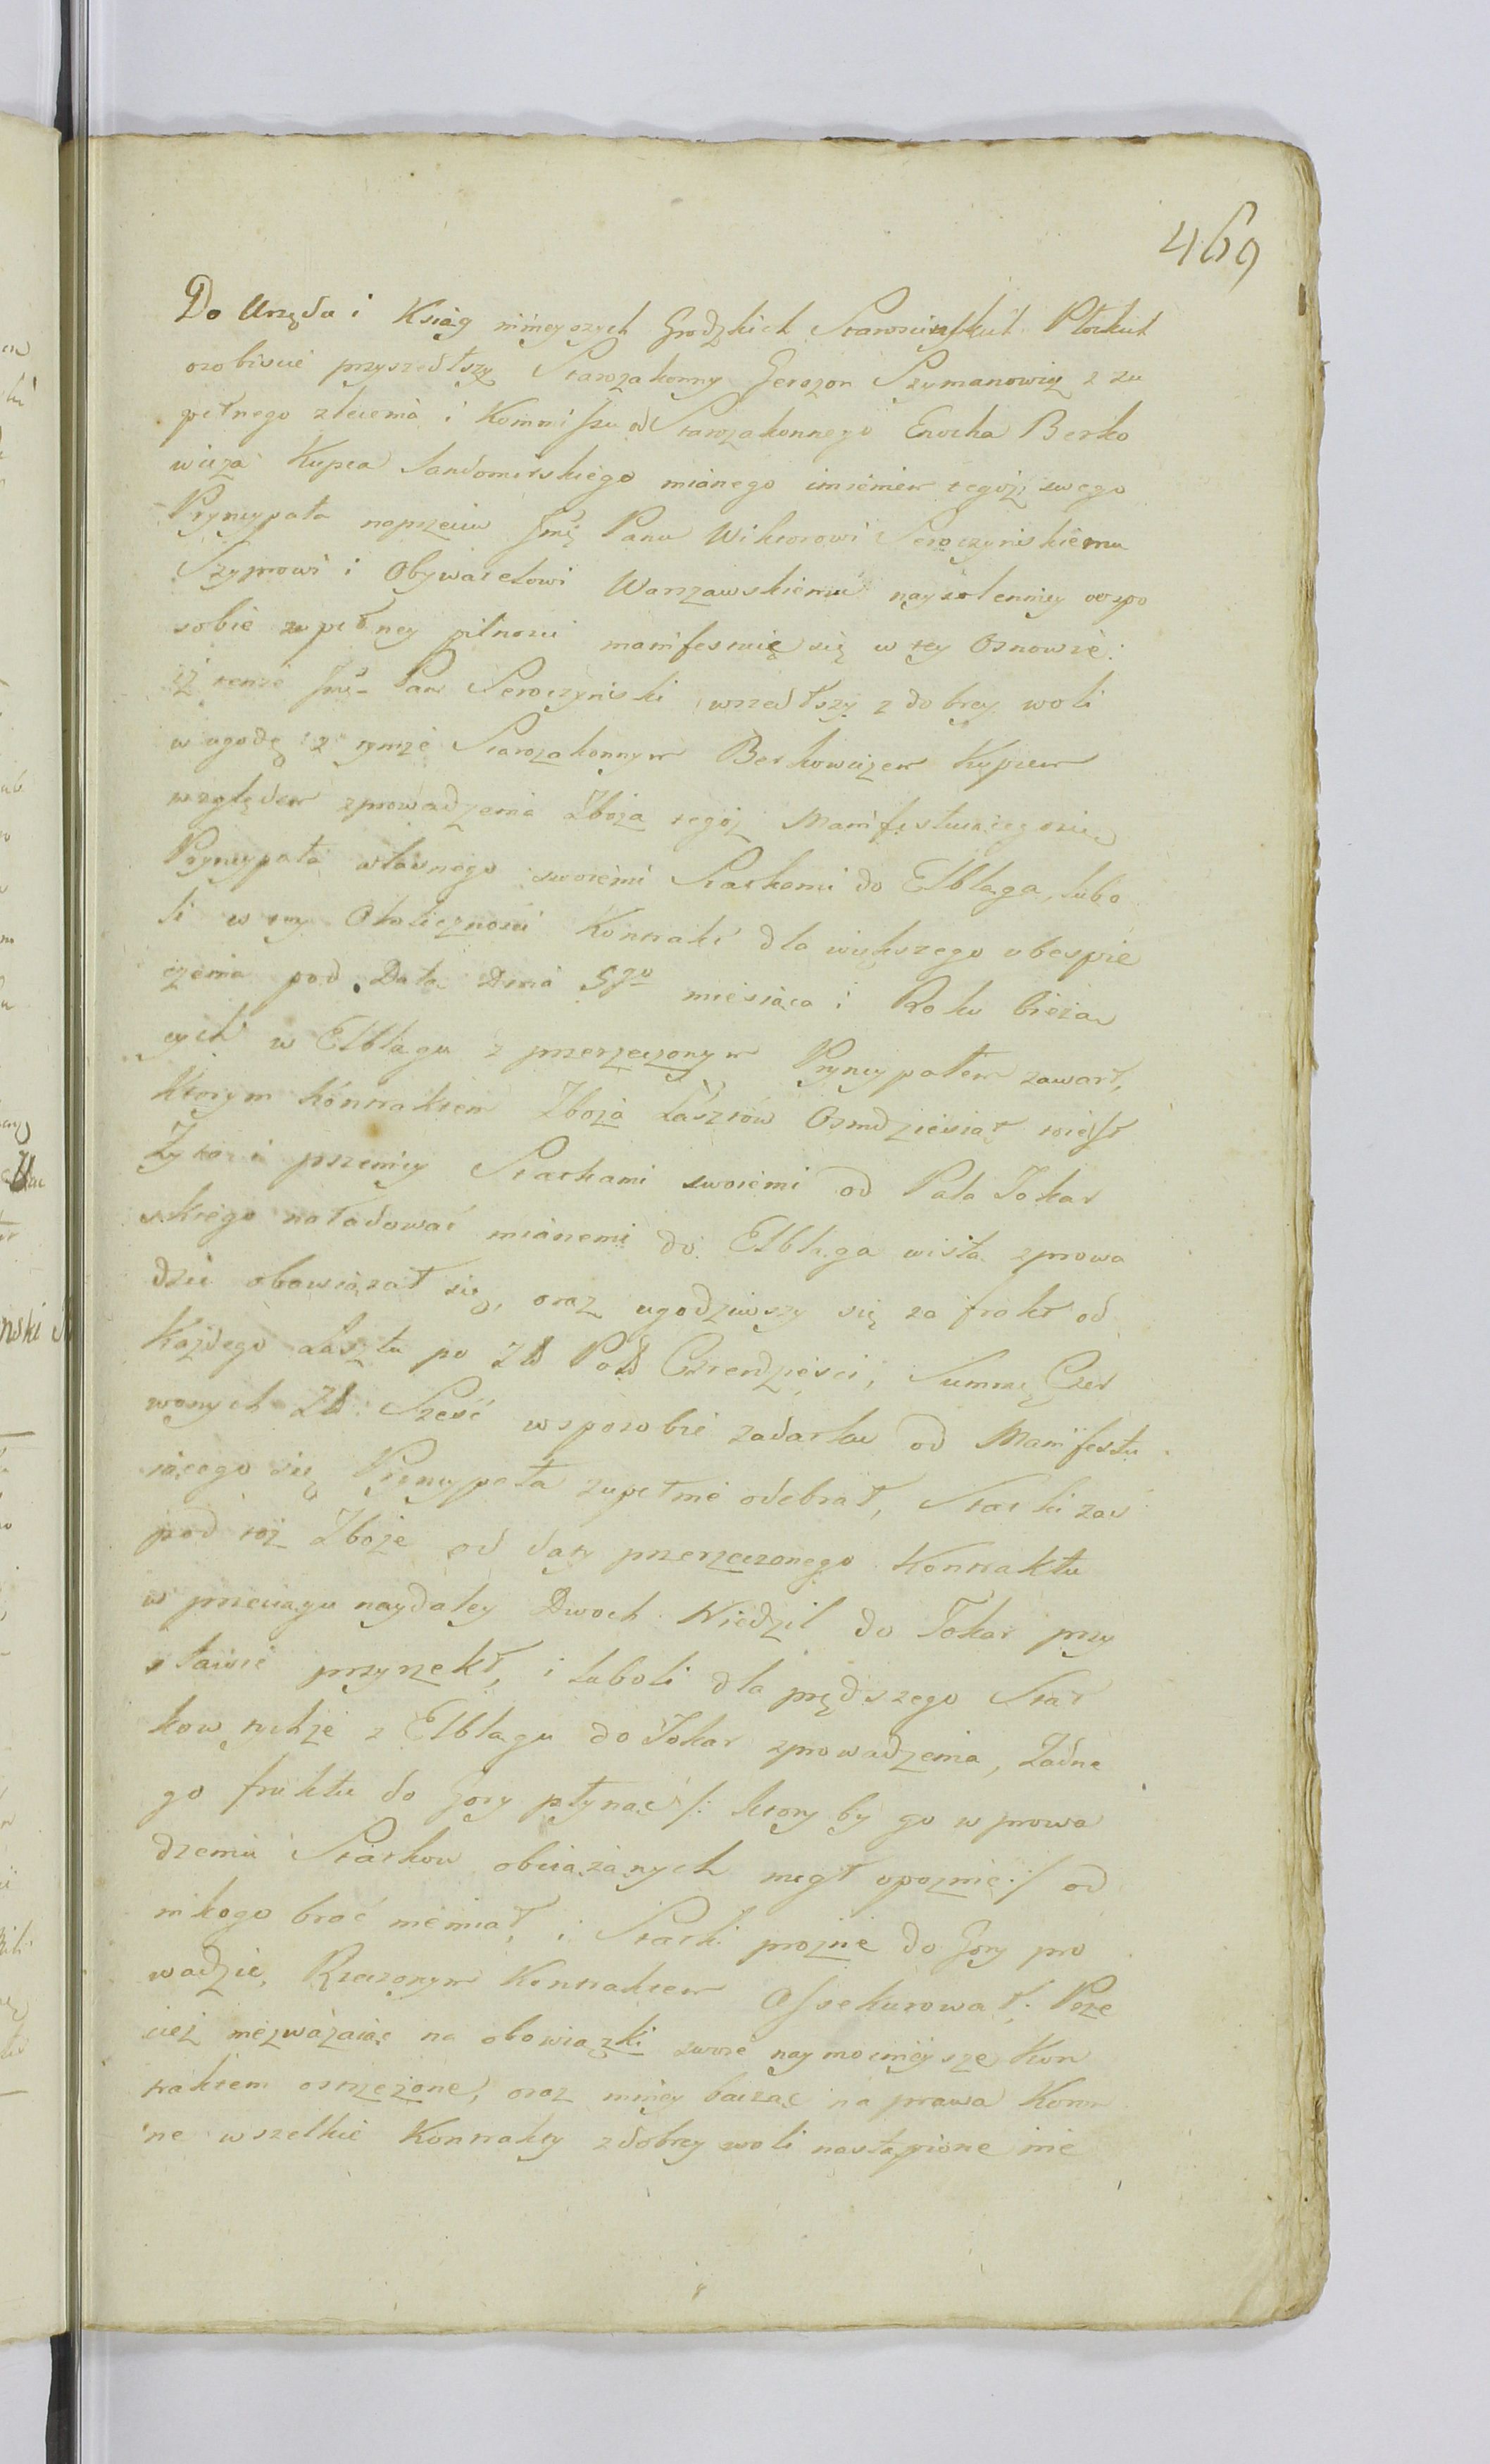 469
Do Urzędu i Ksiąg ninieyszych Grodzkich Starościńskich Płockich
osobiscie przyszedłszy Starozakonny Gerszon Szymanowicz z zu
pełnego zlecenia i Kommissu od Starozakonnego Enocha Berko
wicza Kupca Sandomirskiego mianego imieniem tegoż swego
Pryncypała naprzeciw Jmć Panu Wiktorowi Seroczyńskiemu
Szyprowi i Obywatelowi Warszawskiemu naysolenniey w spo
sobie zupełney pilnosci manifestuie się w tey Osnowie:
iż tenże Jmć Pan Seroczyński wszedłszy z dobrey woli
w ugodę z tymże Starozakonnym Berkowiczem Kupcem
względem zprowadzenia Zboża tegoż Manifestuiącego się
Pryncypała własnego swoiemi Statkami do Elbląga, lubo
li w tey Okoliczności Kontrakt dla większego ubespie
czenia pod Datą Dnia 5go miesiąca i Roku bieżą
cych w Elblągu z przerzeczonym Pryncypałem zawarł,
ktorym Kontraktem Zboża Łasztow Osmdziesiąt
Żyta i pszenicy Statkami swoiemi od Pala Tokar
skiego naładować mianemi do Elbląga Wisłą zprowa
dzić obowiązał się, oraz ugodziwszy się za frakt od
każdego Łasztu po Zł Pol Czterdzieści, Summę Czer
wonych Zł: Sześć w sposobie zadatku od Manifestu
iącego się Pryncypała zupełnie odebrał, Statki zaś
pod toż Zboże od daty przerzeczonego Kontraktu
w przeciągu naydaley Dwoch Niedzil do Tokar przy
stawić przyrzekł, i luboli dla prędszego Stat
kow tychże z Elblągu do Tokar zprowadzenia, Żadne
go fruktu do Gory płynąć /: ktory by go w prowa
dzeniu Statkow obciążanych mogł opoznić :/ od
nikogo brać niemiał, i Statki prożne do Gory pro
wadzić, Rzeczonym Kontraktem Assekurował; Prze
cież niezważaiąc na obowiązki swoie naymocnieysze Kon
traktem ostrzeżone, oraz mniey bacząc na prawa Koron
ne wszelkie Kontrakty z dobrey woli nastąpione nie